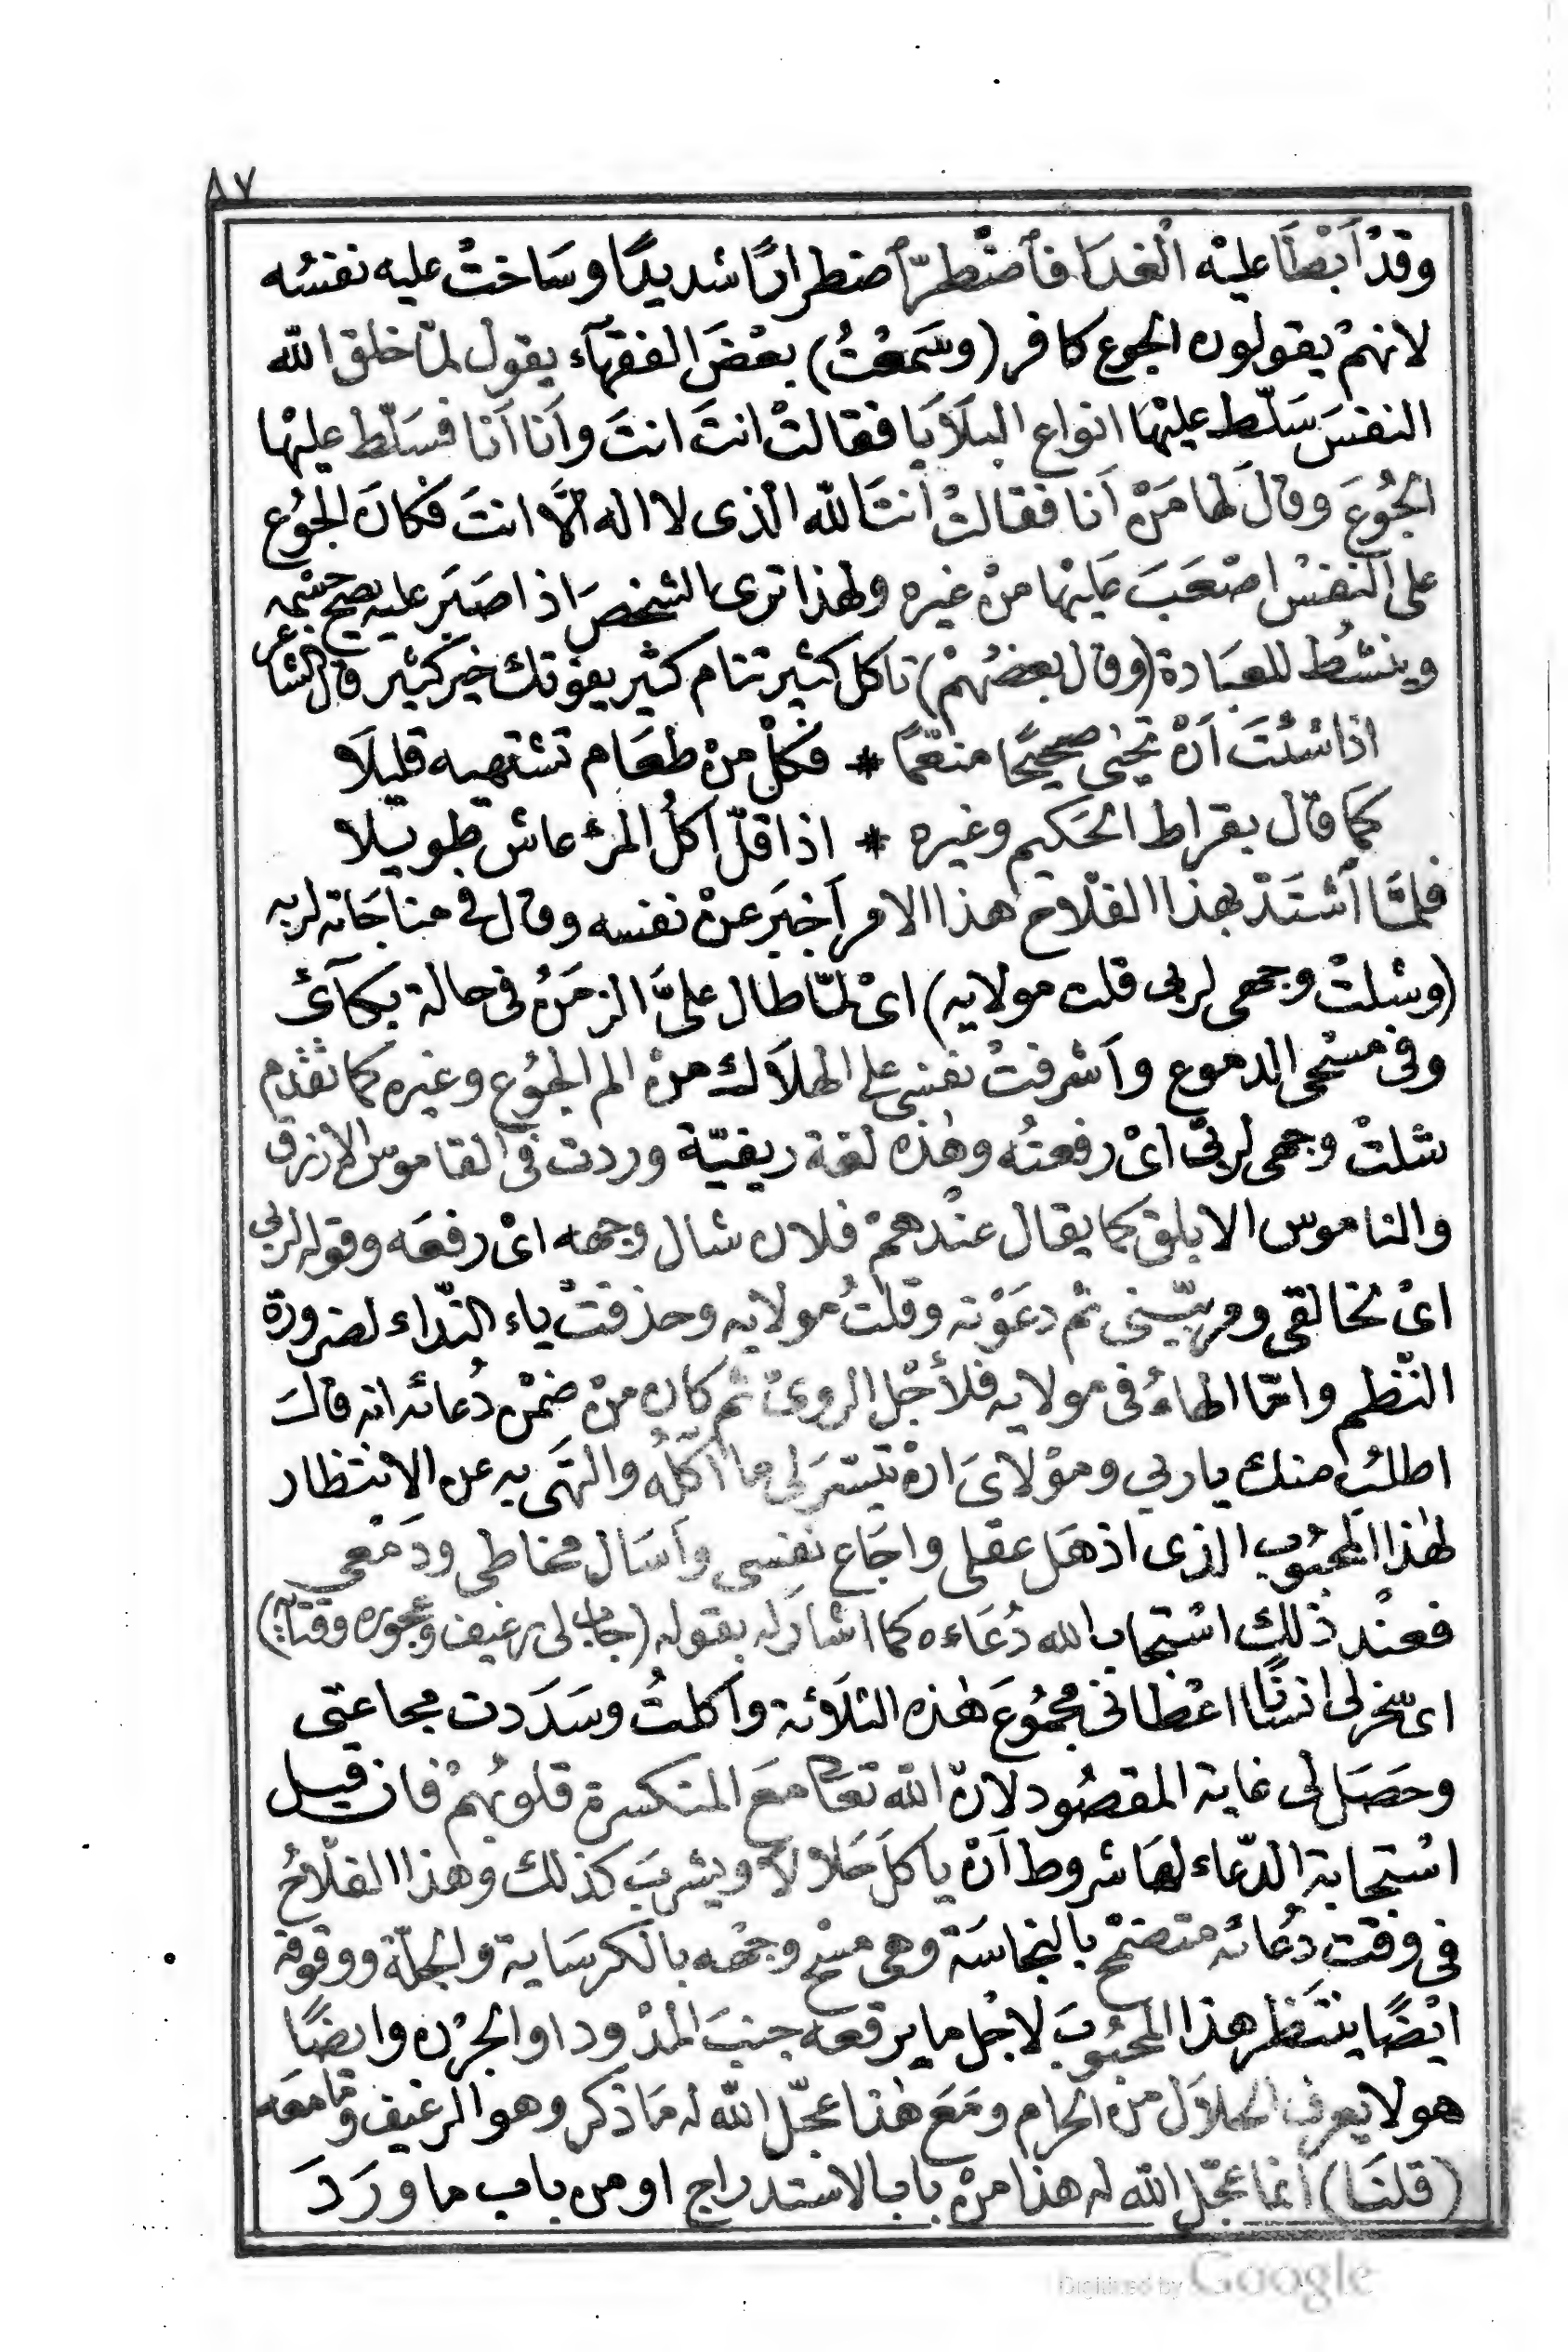 ٨٧
وقدْ اَبْطَا عليْه الْغدَا فٱضْطرّ ٱضطرارًا شديدًا وسَاختْ عليه نفسُه
لانهمْ يقولون الجوع كافر (وسَمعْتُ) بعْضَ الفقهآء يقول لمّا خلق الله
النفسَ سَلّط عليْهَا انواع البلَايَا فقالتْ انتَ انتَ وأنا أنا فسَلّط عليْها
الجُوعَ وقالَ لها مَنْ اَنا فقالتْ اَنتَ الله الذى لا اله الَّا انتَ فكانَ الجُوع
على النفسْ اصْعَبَ عَليْها منْ غيره ولهذا ترى الشخصَ اذا صَبَر عليه يصح جسْمه
وينشُط للعبَادة (وقال بعضُهمْ) تاكل كثير تنام كثير يفوتك خير كثير قال الشاعر
اذا شئتَ اَنْ تحْيٰى صحيحًا منعّمًا * فكُلْ منْ طعَام تشتهيه قليلَا
كمَا قال بقراط الحَكيم وغيره * اذا قلّ اكلُ المرْء عاش طويلا
فلمَّا ٱشْتَدّ بهذا الفلّاح هذا الامر اَخبَر عنْ نفسه وقال فى مناجَاته لربه
(وشلتْ وجهى لربى قلت مولايه) اىْ لمّا طال علىَّ الزمَنُ فى حالة بكآئ
وفى مسْحى الدموع واَشرفتْ نفسى على الهلَاك منْ الم الجُوع وغيره كما تقدم
شلتْ وجهى لربى اىْ رفعتُه وهٰذه لغة ريفيّة وردت فى القاموس الازرق
والناموس الابلق كما يقال عنْدهمْ فلان شال وجهه اىْ رفعَه وقوله لربى
اىْ لخالقى ومربّينى ثم دعَوْته وقلتُ مولايه وحذفتْ ياء النّداء لضرورة
النّظم وامّا الهاءُ فى مولايه فلأجْل الروىّ ثم كان منْ ضمْن دُعائه انه قال
اطلبُ منك يا ربي ومؤلاىَ انْ تيسّرَ لى ما اٰكلُه والتهَى به عن الانتظار
لهٰذا المحْبُوب الذى اذهَل عقلى واجَاع نفسى واَسَال مخاطى ودَمعى
فعنْد ذلك اسْتجاب الله دُعَاءه كما اشارَ له بقوله (جاب لى رغيف وعجوره وقثايه)
اى سخر لى انسَانًا اعْطانى مجمُوعَ هٰذه الثلَاثة واَكلتُ وسَدَدت مجاعتى
وحصَل لى غاية المقصُود لانّ الله تعَا معَ المنكسرة قلوبُهمْ فان قيل
استجابة الدّعاء لهَا شروط اَنْ ياكلَ حَلالا ويشربَ كذلك وهذا الفلّاحُ
فى وقت دُعائه متضمخ بالنجاسَة وهى مسْح وجْهه بالكرسَاية والجلّة ووقوفه
ايْضًا ينتَظر هذا المحْبُوبَ لاجْل ما يرقعه جنبَ المذْود او الجُرْن وايضًا
هو لا يعرف الحلَال من الحرام ومَعَ هٰذا عجّل الله له مَا ذكر وهو الرغيف وما معَه
(قلنَا) انما عجّل الله له هذا منْ باب الاستدراج او من باب ما ورَدَ
Digitized by Google